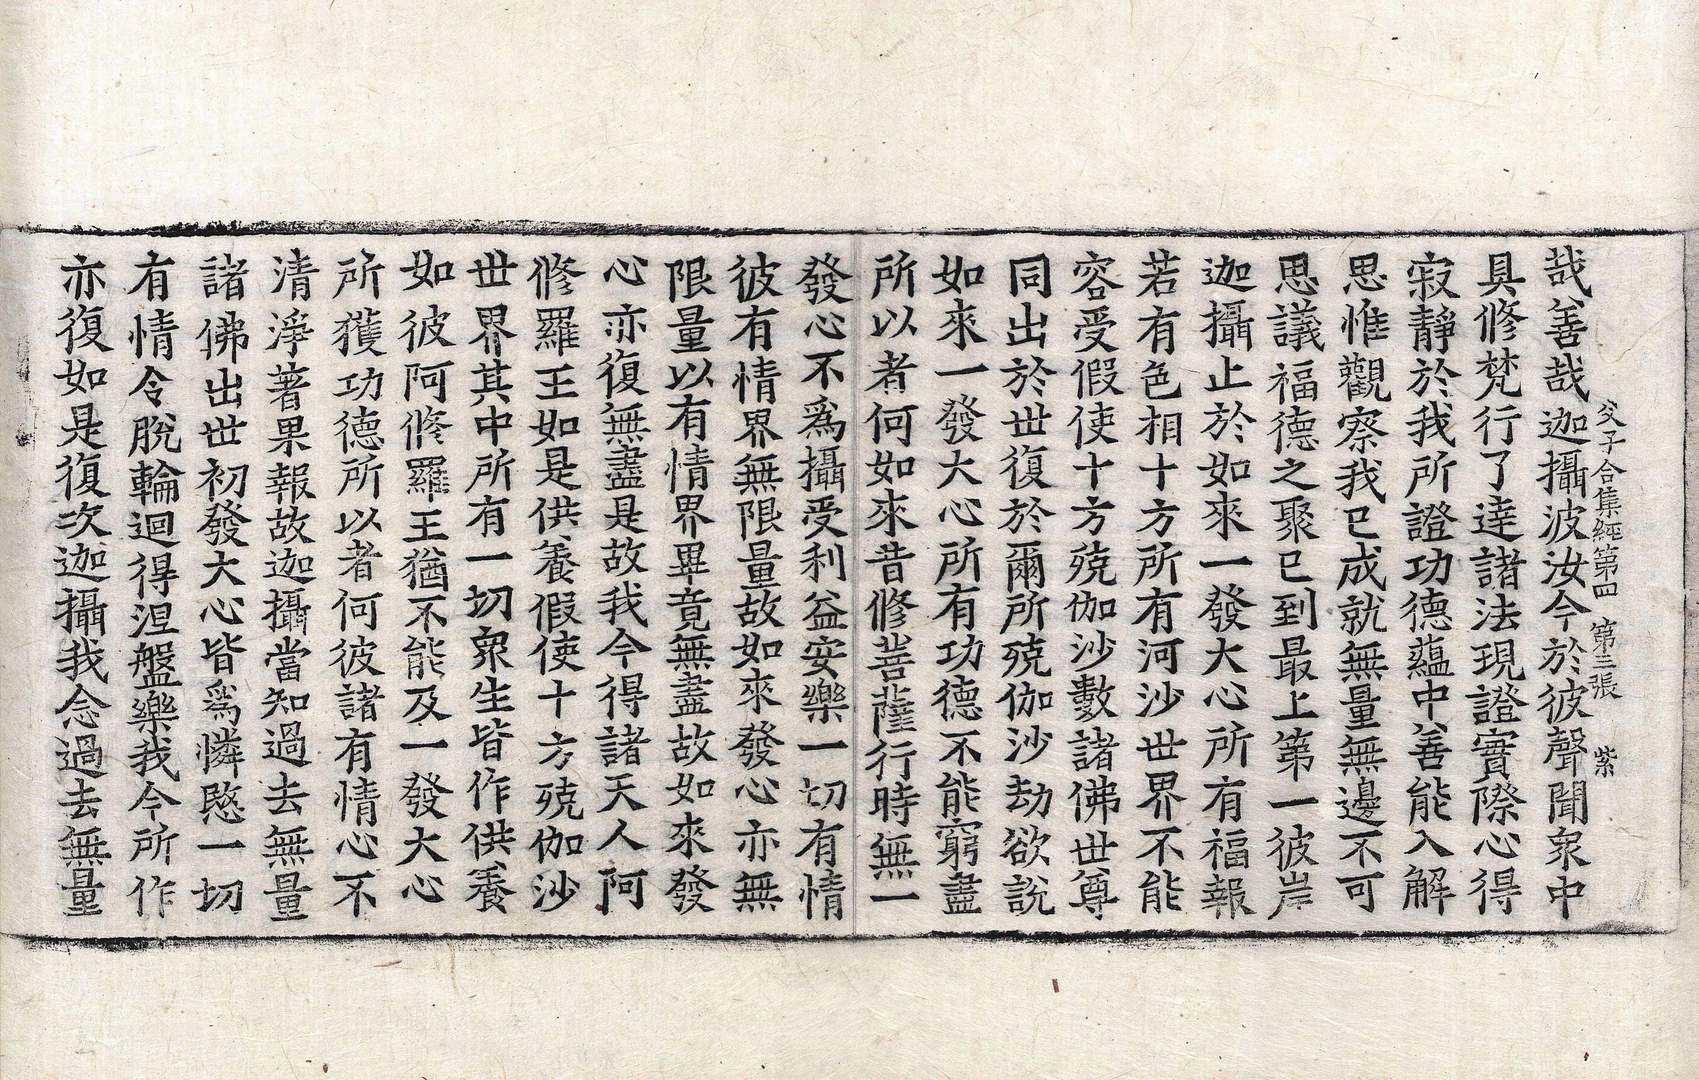 父子合集經第四 第三張 紫
哉善哉迦攝波汝今於彼聲聞衆中
具修梵行了達諸法現證實際心得
寂靜於我所證功德蘊中善能入解
思惟觀察我已成就無量無邊不可
思議福德之聚已到最上第一彼岸
迦攝止於如來一發大心所有福報
若有色相十方所有河沙世界不能
容受假使十方殑伽沙數諸佛世尊
同出於世復於爾所殑伽沙劫欲說
如來一發大心所有功德不能窮盡
所以者何如來昔修菩薩行時無一
發心不爲攝受利益安樂一切有情
彼有情界無限量故如來發心亦無
限量以有情界畢竟無盡故如來發
心亦復無盡是故我今得諸天人阿
修羅王如是供養假使十方殑伽沙
世界其中所有一切衆生皆作供養
如彼阿修羅王猶不能及一發大心
所獲功德所以者何彼諸有情心不
清淨著果報故迦攝當知過去無量
諸佛出世初發大心皆爲憐愍一切
有情令脫輪迴得涅盤樂我今所作
亦復如是復次迦攝我念過去無量